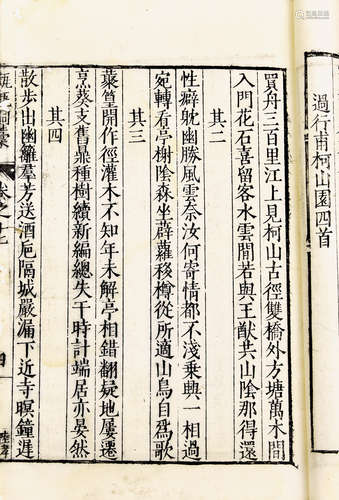 過行甫柯山園四首
買舟三百里江上見柯山古徑雙橋外方塘萬木間
入門花石喜留客水雲閒若與王猷共山陰那得還
其二
性癖躭幽勝風雲奈汝何寄情都不淺乗興一相過
宛轉看亭榭陰森坐薜蘿移樽從所適山鳥自爲歌
其三
蓁篁開作徑灌木不知年未解亭相錯翻疑地屢遷
烹葵支舊鼎種樹續新編總失干時計端居亦晏然
其四
散步出幽籬羣芳送酒巵隔城嚴漏下近寺暝鐘遲
卷之十七
四